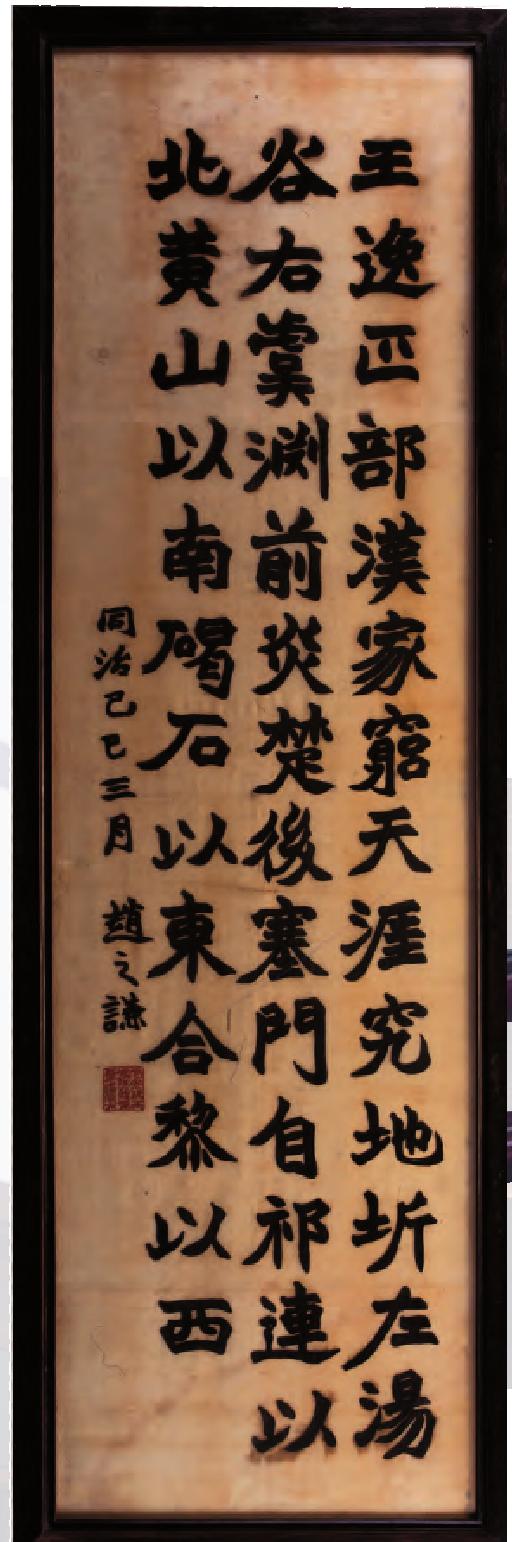 王逸匹部漢家窮天涯究地圻左湯
谷右虞渊前炎楚後塞門自祁連以
北黄山以南碣石以東合黎以西
同治己巳三月 趙之謙